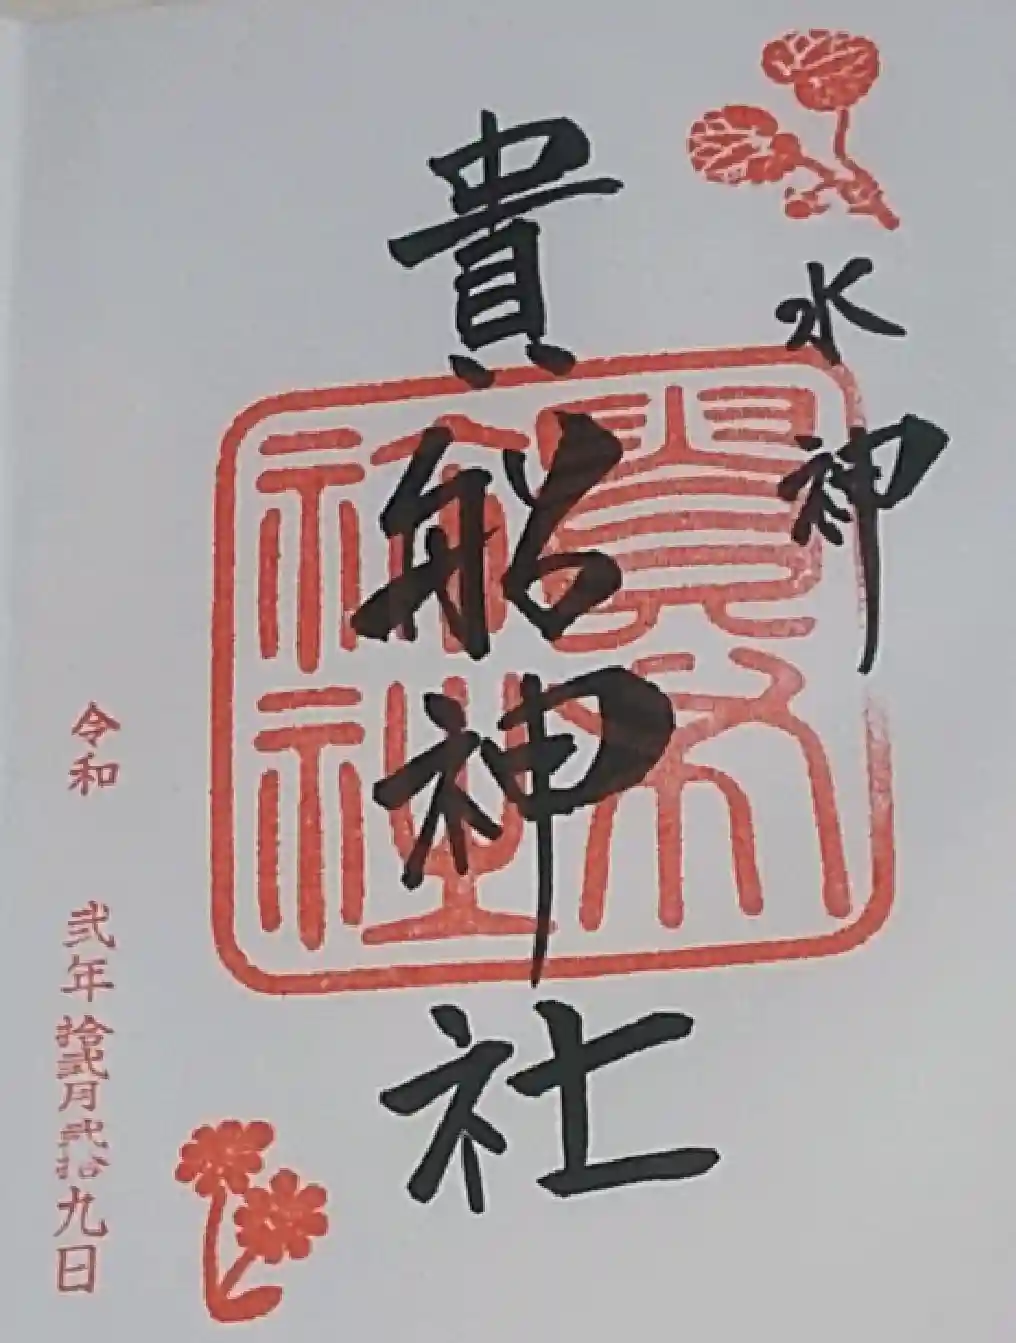 水神
貴船神社
貴布祢神社
令和 弐年拾弐月弐拾九日